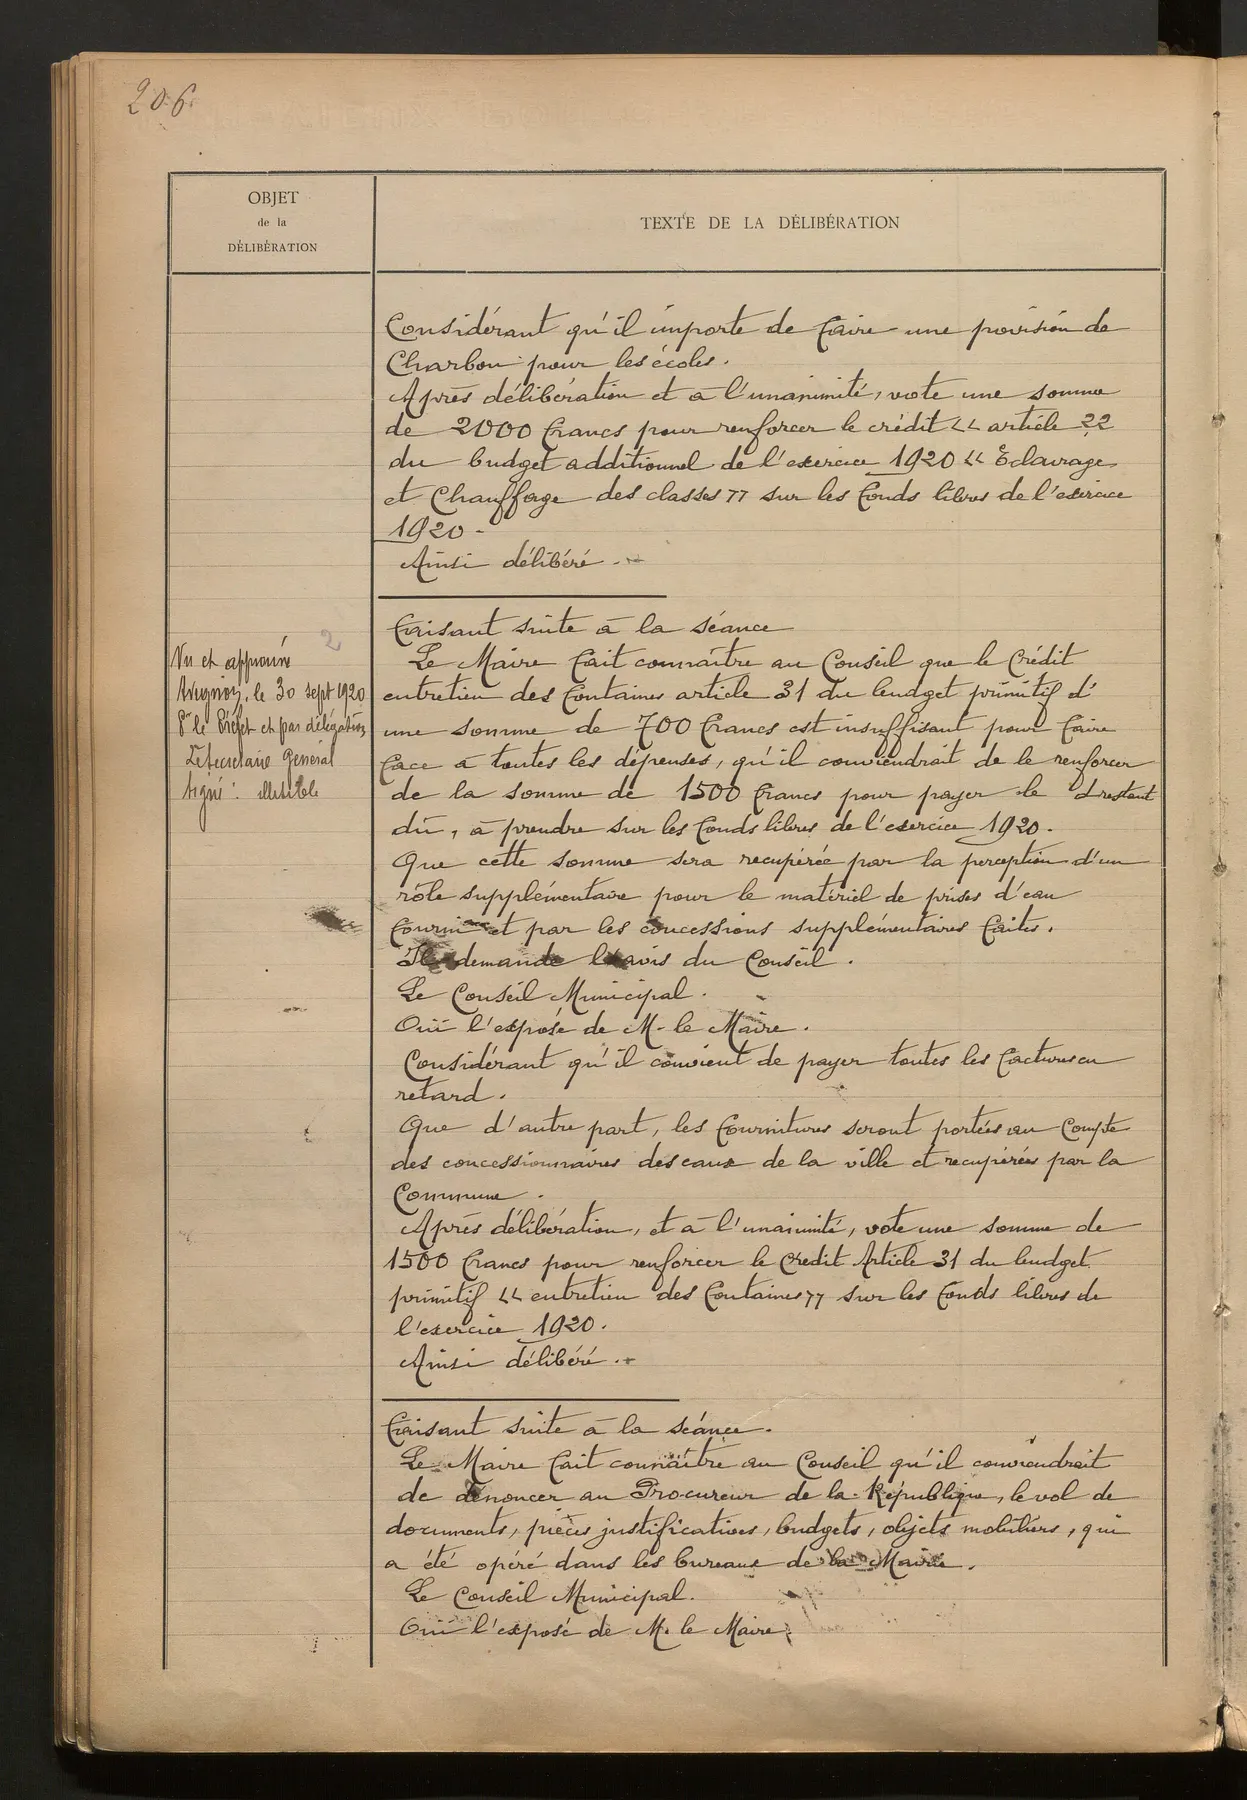 206
OBJET
de la
DÉLIBÉRATION
TEXTE DE LA DÉLIBÉRATION
Considérant qu'il importe de faire une provision de
Charbon pour les écoles.
Après délibération et à l'unanimité, vote une somme
de 2000 francs pour renforcer le crédit « article 22
du budget additionnel de l'exercice 1920 « Eclairage
et Chauffage des classes » sur les fonds libres de l'exercice
1920 -
Ainsi délibéré . -
2
Vu et approuvé
Avignon, le 30 sept 1920
Pr le Préfet et par délégation
Le Secrétaire Général
Signé : illisible
Faisant suite à la séance
Le Maire fait connaître au Conseil que le Crédit
entretien des fontaines article 31 du budget primitif d'
une somme de 700 francs est insuffisant pour faire
face à toutes les dépenses, qu'il conviendrait de le renforcer
de la somme de 1500 francs pour payer le restant
dû, à prendre sur les fonds libres de l'exercice 1920.
Que cette somme sera recupérée par la perception d'un
rôle supplémentaire pour le matériel de prises d'eau
fourni et par les concessions supplémentaires faites.
Il demande l'avis du Conseil.
Le Conseil Municipal.
Ouï l'exposé de M. le Maire.
Considérant qu'il convient de payer toutes les factures en
retard.
Que d'autre part, les fournitures seront portées au Compte
des concessionnaires des eaux de la ville et recupérées par la
Commune.
Après délibération, et à l'unaimité, vote une somme de
1500 francs pour renforcer le Crédit Article 31 du budget
primitif « entretien des fontaines » sur les fonds libres de
l'exercice 1920.
Ainsi délibéré . -
Faisant suite à la séance.
Le Maire fait connaître au Conseil qu'il conviendrait
de dénoncer au Procureur de la République, le vol de
documents, pièces justificatives, budgets, objets mobiliers, qui
a été opéré dans les bureaux de la Mairie.
Le Conseil Municipal.
Ouï l'exposé de M. le Maire.